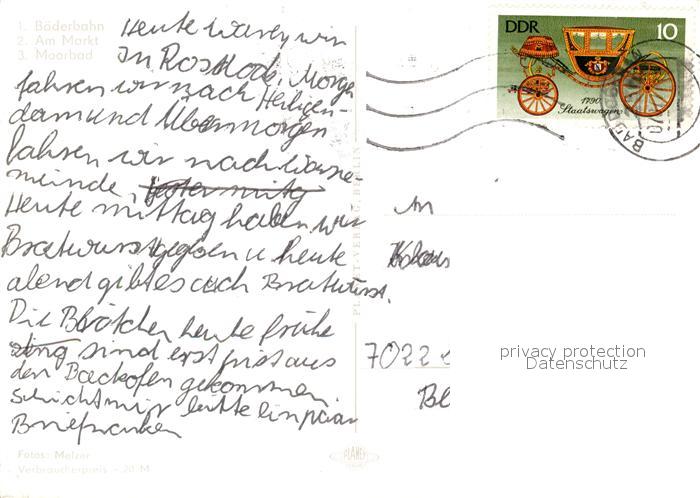 1. Bäderbahn
2. Am Markt
3. Moorbad
Heute waren wir
in Rostock, Morgen
fahren wir nach Heiligen-
dam und Übermorgen
fahren wir nach Warne-
münde,
Heute mittag haben wir
Bratwurst gegessen u heute
abend gibt es auch Bratwurst.
Die Brötchen heute frühe
sind erst frist aus
den Backofen gekommen.
Schickt mir bitte ein paar
Briefmarken
Fotos: Melzer
Verbraucherpreis -,20 M
PLANET-VERLAG BERLIN
PLANET
DDR
10
1790
Staatswagen
BAD
An
Klaus
7022
Bl
privacy protection
Datenschutz